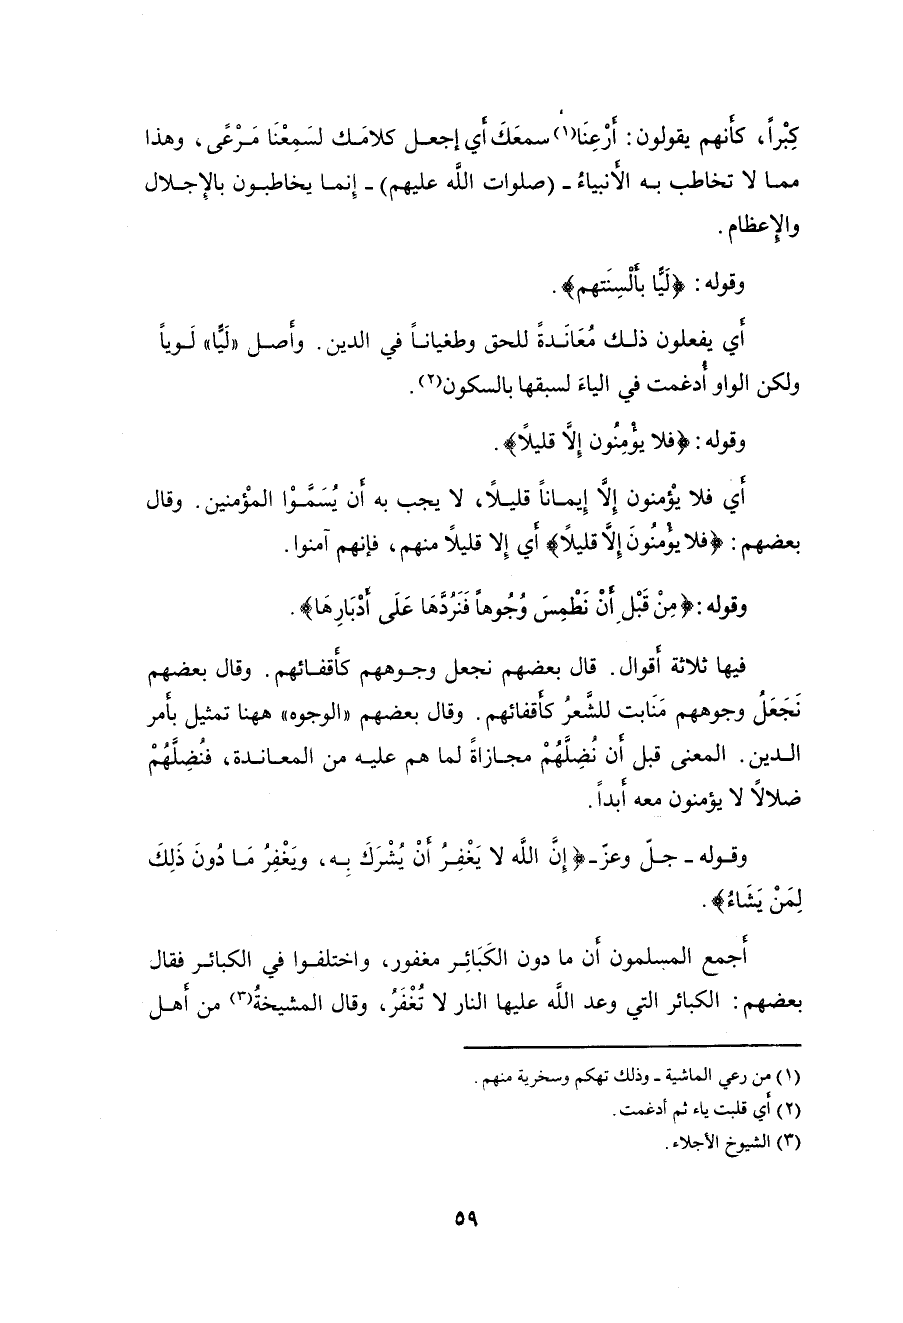 كِبْراً، كأَنهم يقولون: أَرْعِنَا(١) سمعَكَ أَي إجعل كلامَك لسَمِعْنَا مَرْعًى، وهذا
مما لا تخاطب به الأَنبياءُ ـ (صلوات اللَّه عليهم) ـ إِنما يخاطبون بالإِجلال
والإِعظام.
وقوله: ﴿لَيًّا بأَلْسِنَتهم﴾.
أَي يفعلون ذلك مُعَانَدةً للحق وطغياناً في الدين. وأَصل «لَيًّا» لَوياً
ولكن الواو أُدغمت في الياءَ لسبقها بالسكون(٢).
وقوله: ﴿فلا يؤْمِنُون إِلَّا قليلًا﴾.
أَي فلا يؤْمنون إِلَّا إِيماناً قليلًا، لا يجب به أَن يُسَمَّوْا المؤْمنين. وقال
بعضهم: ﴿فلا يؤْمنُونَ إِلَّا قليلًا﴾ أَي إِلا قليلًا منهم، فإنهم آمنوا.
وقوله: ﴿مِنْ قَبْلِ أَنْ نَطْمِسَ وُجُوهاً فَنَرُدَّهَا عَلَى أَدْبَارِهَا﴾.
فيها ثلاثة أَقوال. قال بعضهم نجعل وجوههم كأَقفائهم. وقال بعضهم
نَجَعَلُ وجوههم مَنَابت للشَّعرُ كأَقفائهم. وقال بعضهم «الوجوه» ههنا تمثيل بأَمر
الدين. المعنى قبل أَن نُضِلَّهُمْ مجازاةً لما هم عليه من المعاندة، فنُضِلَّهُمْ
ضلالًا لا يؤمنون معه أَبداً.
وقوله ـ جلّ وعزّ ـ ﴿إِنَّ اللَّه لا يَغْفِرُ أَنْ يُشْرَكَ بِه، ويَغْفِرُ مَا دُونَ ذَلِكَ
لِمَنْ يَشَاءُ﴾.
أَجمع المسلمون أَن ما دون الكَبَائِر مغفور، واختلفوا في الكبائر فقال
بعضهم: الكبائر التي وعد اللَّه عليها النار لا تُغْفَرُ، وقال المشيخةُ(٣) من أَهل
(١) من رعي الماشية ـ وذلك تهكم وسخرية منهم.
(٢) أَي قلبت ياء ثم أدغمت.
(٣) الشيوخ الأجلاء.
٥٩